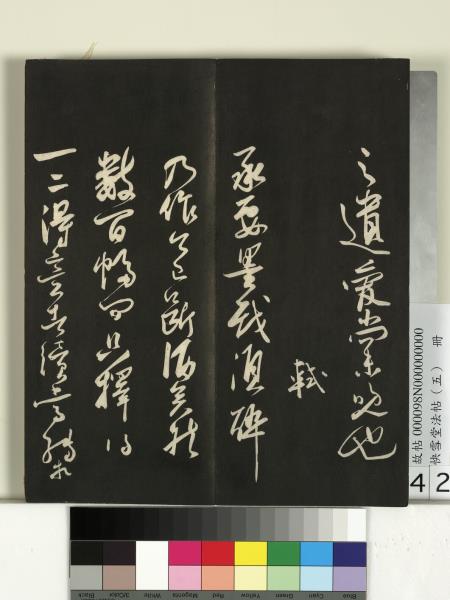 之遺愛尚未晚也
軾
承要墨戲須醉
乃作今已斷酒矣於
數百幅中只擇得
一二得意者續寄
故帖 000098N000000000
快雪堂法帖（五） 冊
4 2
Blue Cyan Green Yellow Red Magenta White 3/Color Black